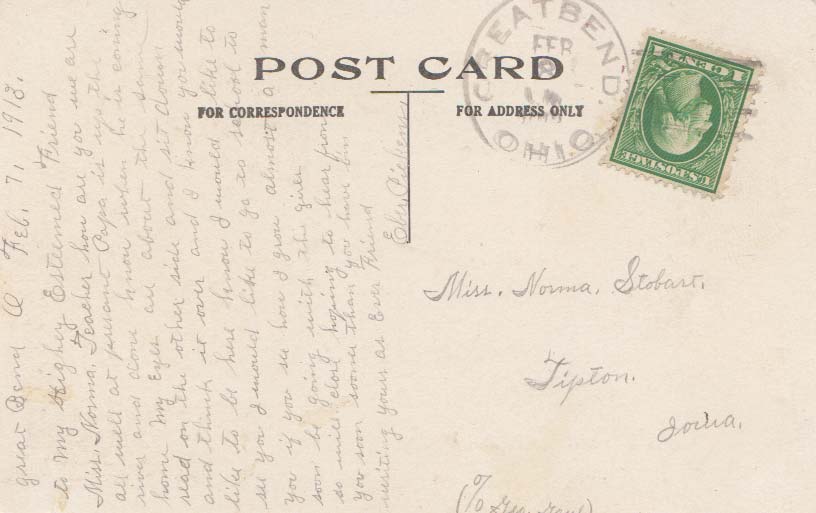 POST CARD
FOR CORRESPONDENCE
FOR ADDRESS ONLY
GREAT BEND
FEB
OHIO
U.S. POSTAGE
1 CENT 1
Great Bend O Feb. 7, 1913.
to My Highey Esteemed Friend
Miss. Norma. Teacher how are you we are
all well at present Papa is up the
river and done know when he is coming
home My Eyes are about the same
read on the other side and sit down
and think it over and I know you would
like to be here know I would like to
see you I would like to go to school to
you if you see how I grow almost a man
soon be going with the girls
so will close hoping to hear from
you soon sooner than you have bin
writing yours as Ever Friend
Eber Pickens
Miss. Norma. Stobart.
Tipton.
Iowa.
(c/o Geo.